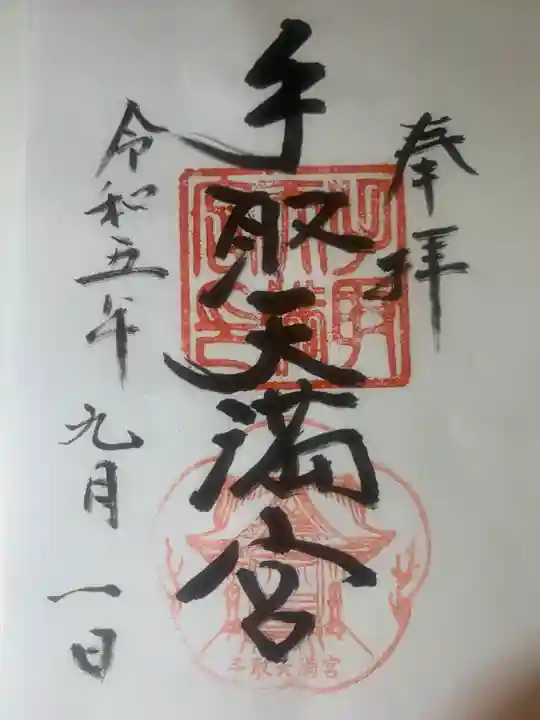 奉拝
手取天満宮
令和五年
九月
一日
手取天満宮